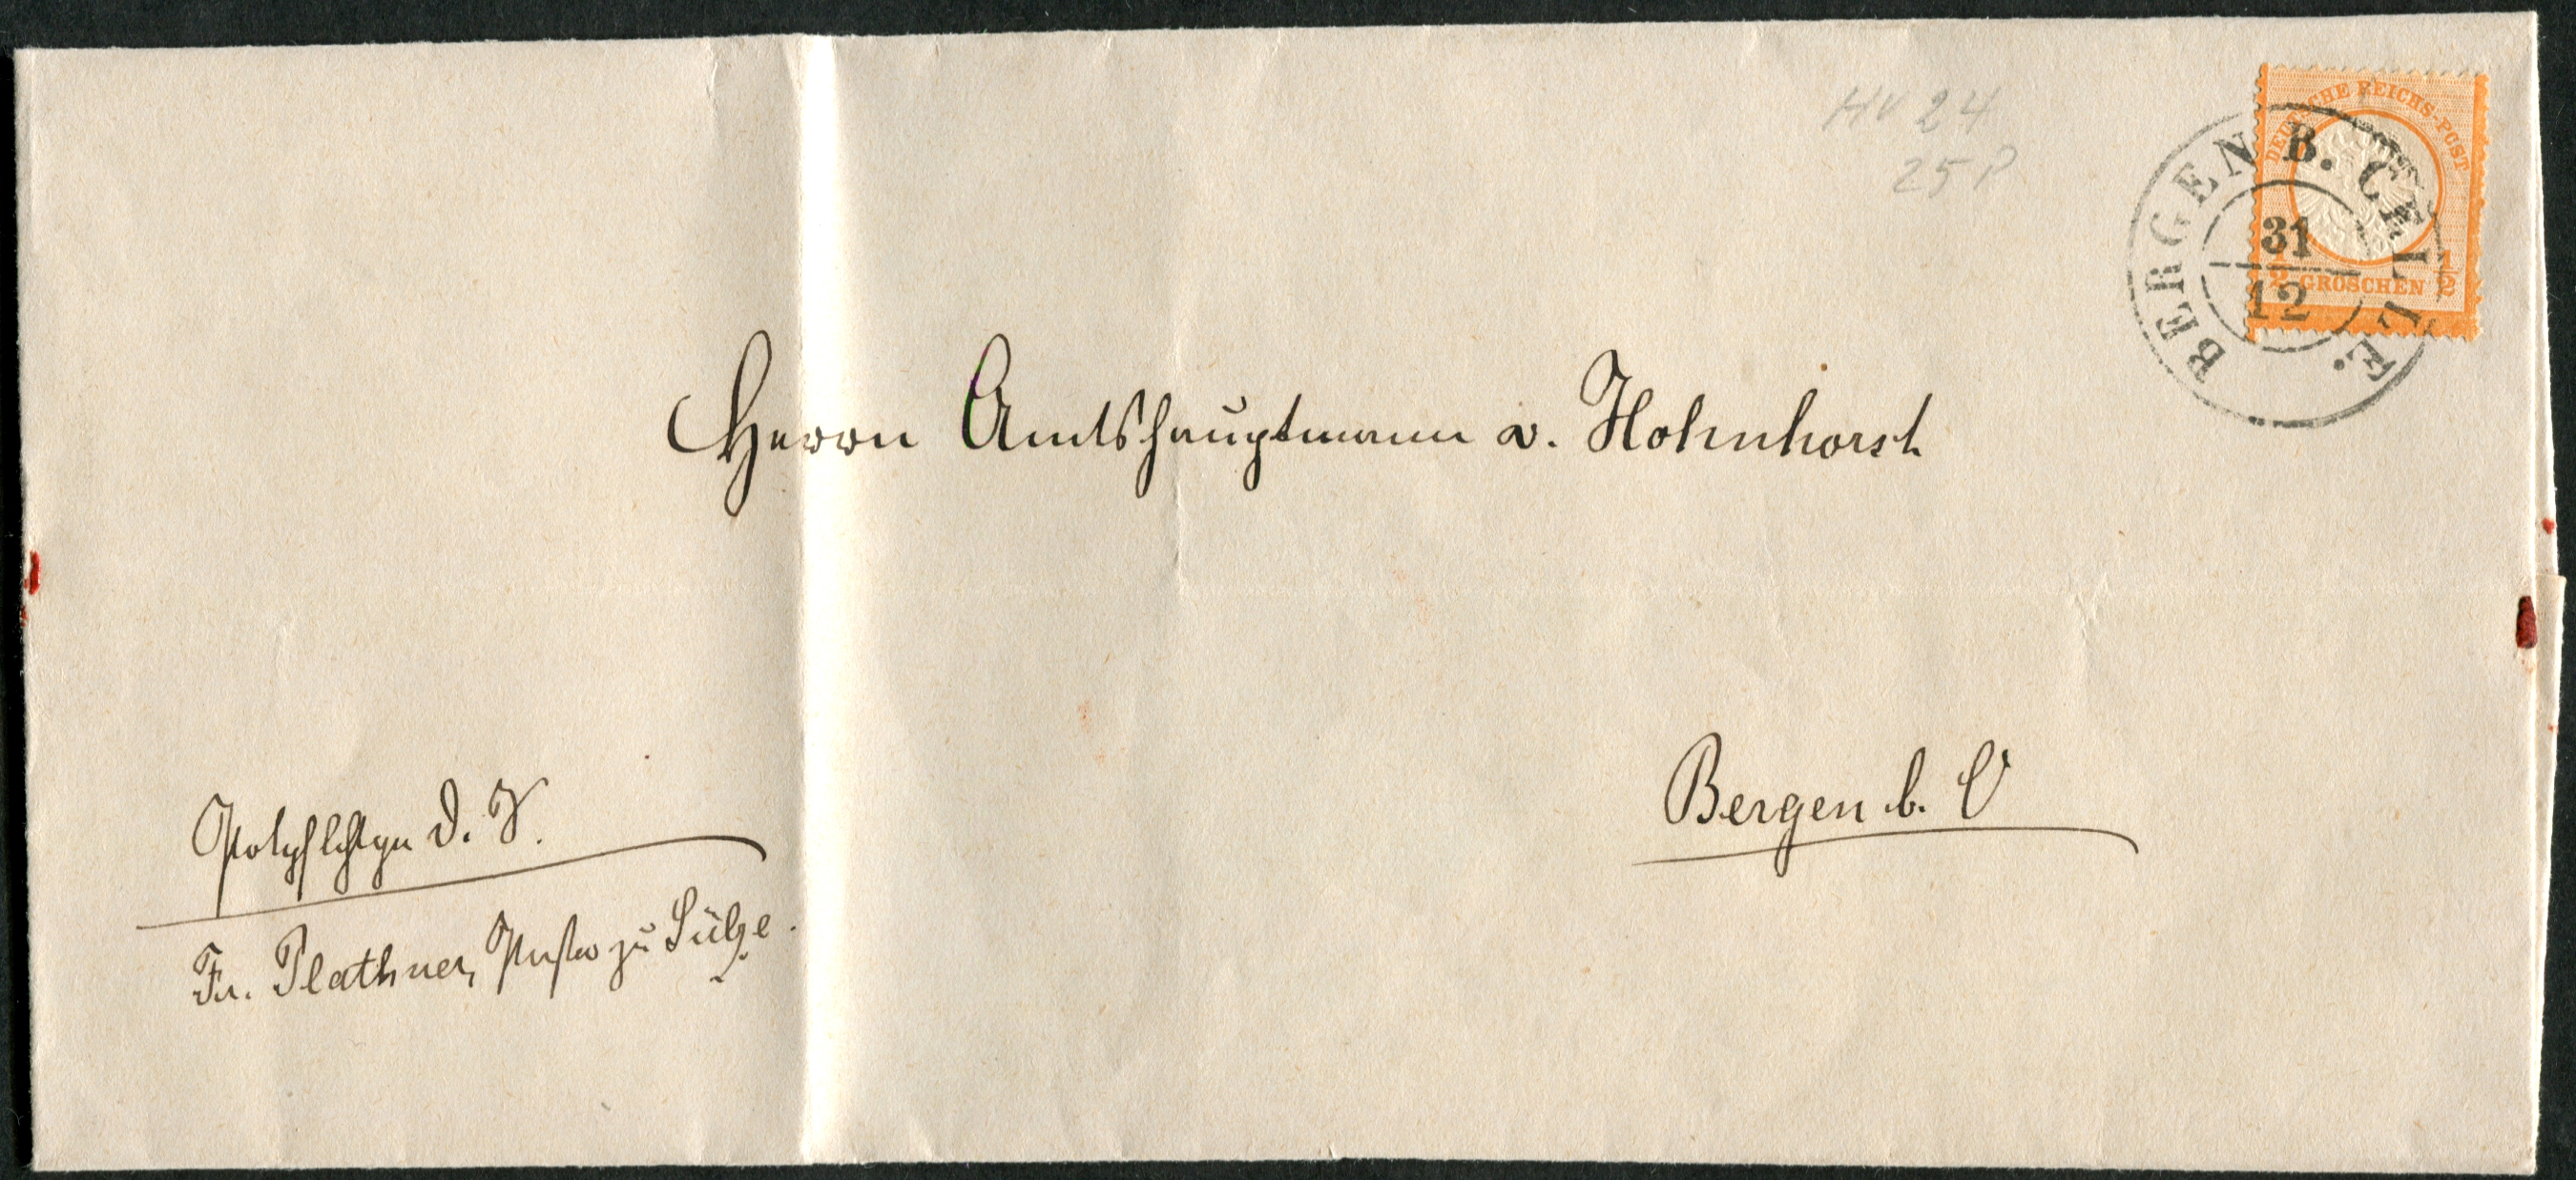 HV 24
25 P
DEUTSCHE REICHS-POST
½ GROSCHEN ½
BERGEN B. CELLE.
31
12
Herrn Amtshauptmann v. Hohnhorst
Bergen b. C
Portopflchtge D. S.
Fr. Plathner, Pastor zu Sülze.